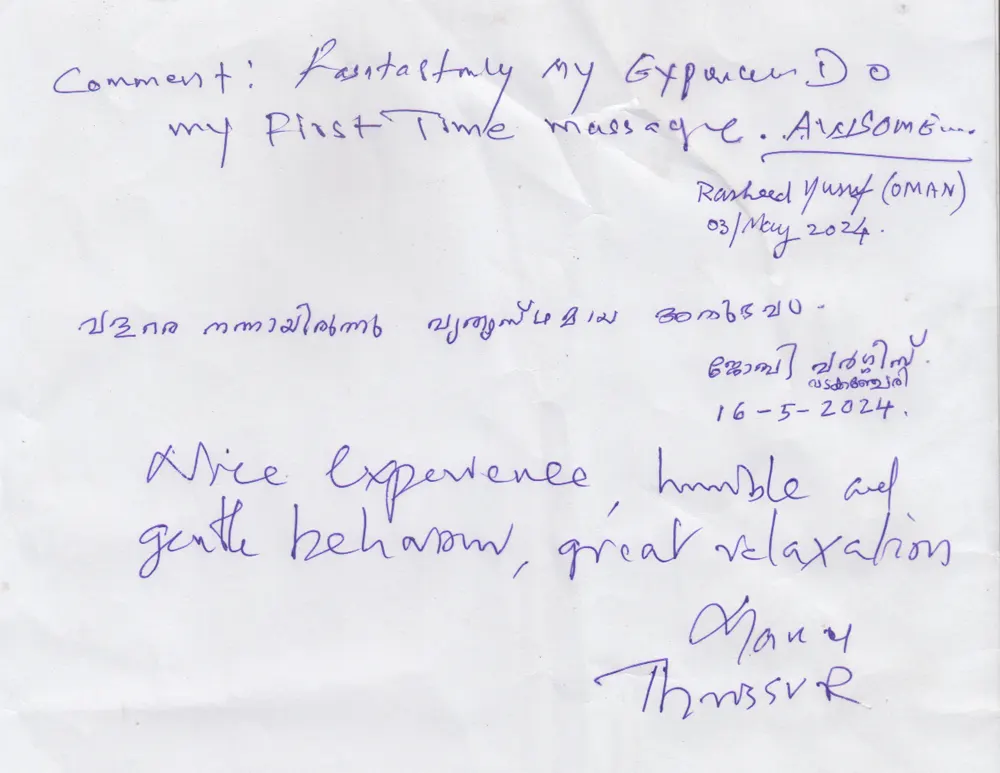 Comment: Fasntastinly my Experiences Do
my First Time massage. AWSOME....
Rasheed Yusuf (OMAN)
03/May 2024.
വളരെ നന്നായിരുന്നു വ്യത്യസ്ഥമായ അനുഭവം.
ജോബി വർഗ്ഗീസ്.
വടക്കഞ്ചേരി
16-5-2024.
Nice experience, humble and
gentle behaviour, great relaxation
ThrissuR